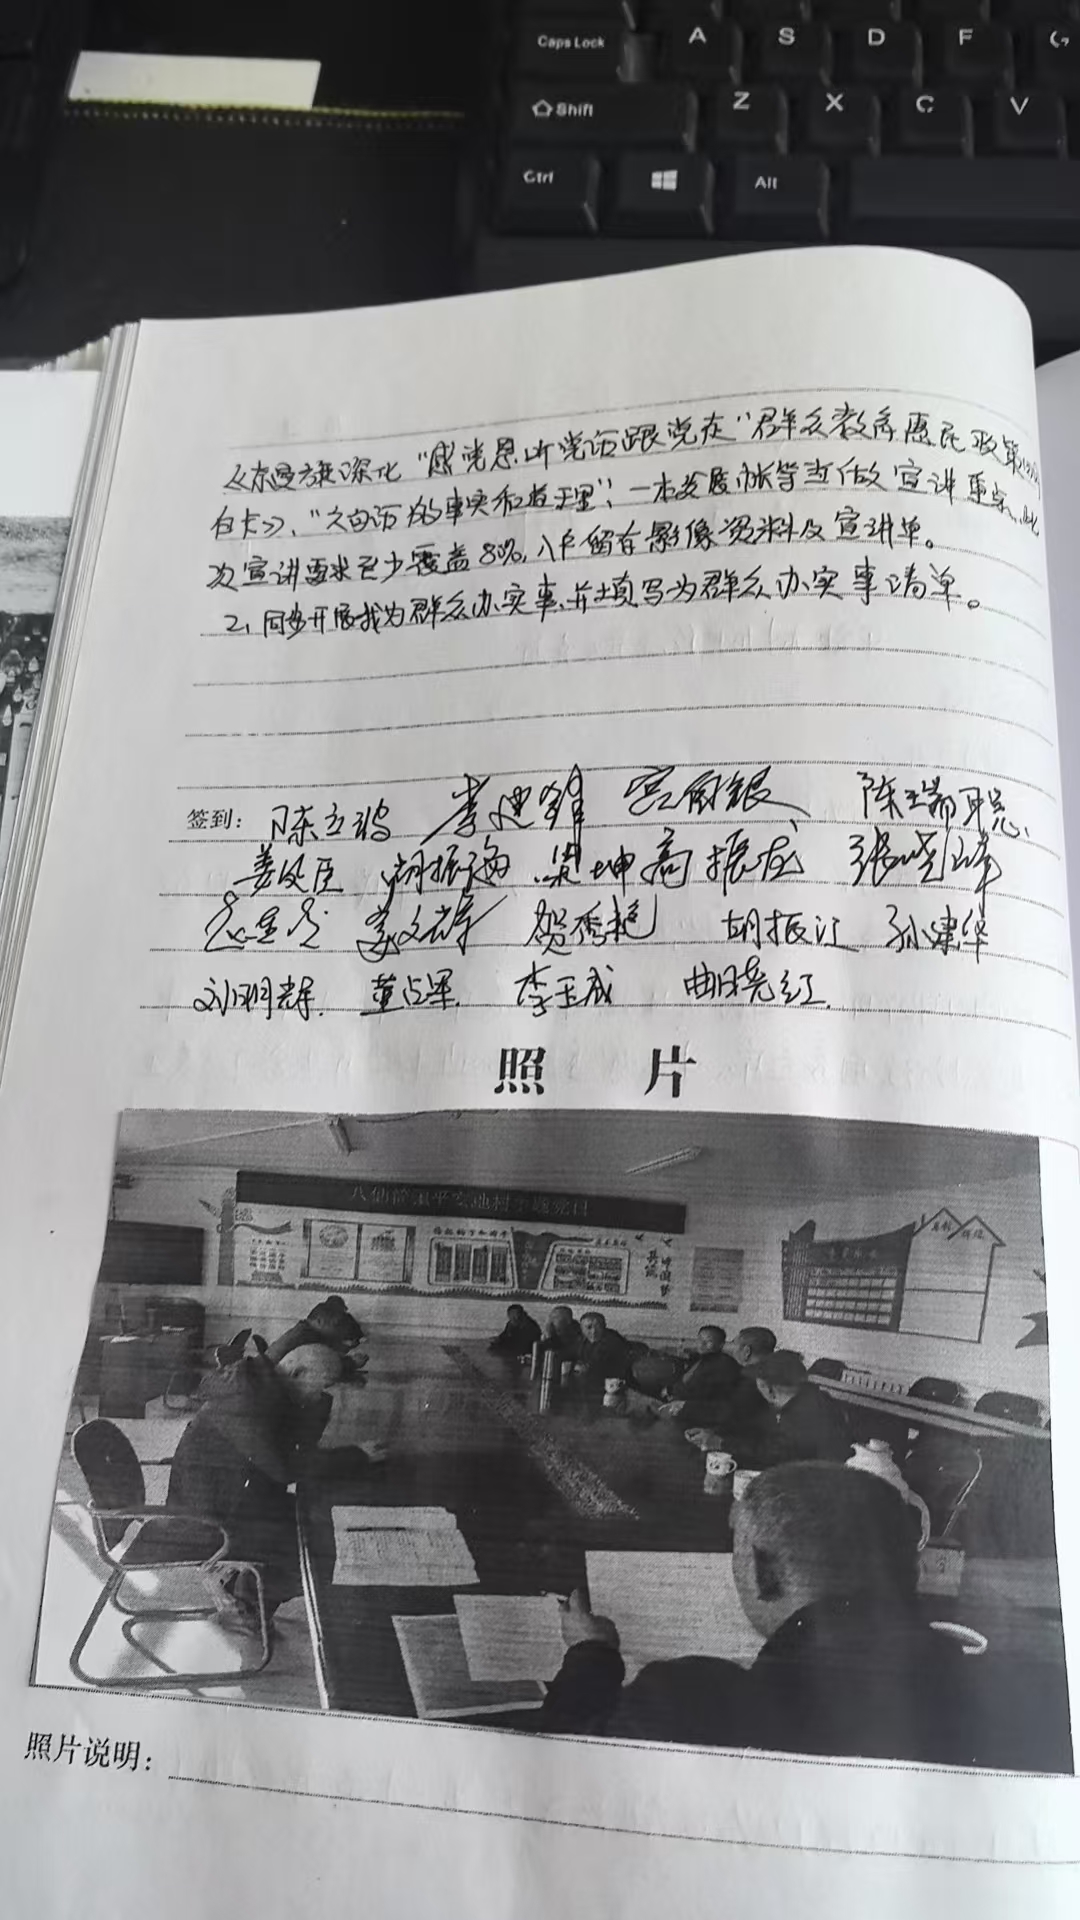 Caps Lock A S D F G
Shift Z X C V
Ctrl Alt
《奈曼旗深化“感党恩、听党话、跟党走”群众教育惠民政策明
白卡》、“大白话的事实和道理”、一本发展账等当做宣讲重点、此
次宣讲要求至少覆盖80%,入户留存影像资料及宣讲单。
2、同步开展我为群众办实事、并填写为群众办实事清单。
签到: 陈立波 李建锋 陈瑞聪
姜处臣 胡振海 梁坤 高振龙 张晓峰
姜文祥 贺秀艳 胡振江 孙建华
刘明辉 董占军 李玉成 曲晓红
照 片
八仙筒镇平安地村主题党日
中国梦
照片说明: